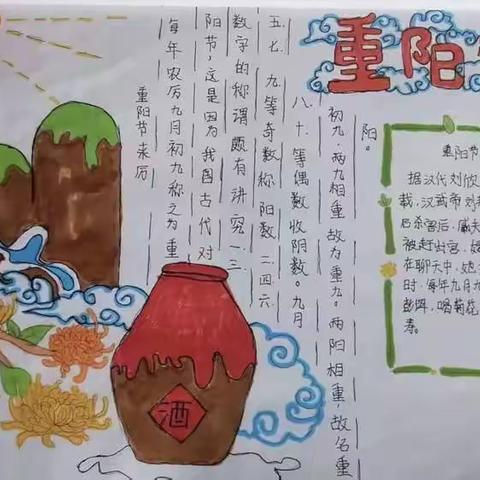 重阳
重阳节来历
每年农历九月初九称之为重
阳节,这是因为我国古代对
数字的称谓颇有讲究一三
五.七.九等奇数称阳数.二四六
八.十.等偶数收阴数。九月
初九,两九相重故为重九。两阳相重,故名重
阳。
重阳节
据汉代刘欣
载,汉武帝刘
后杀害后,戚夫
被赶出宫,嫁
在聊天中,她
时,每年九月九
彭饵,喝菊花
寿。
酒